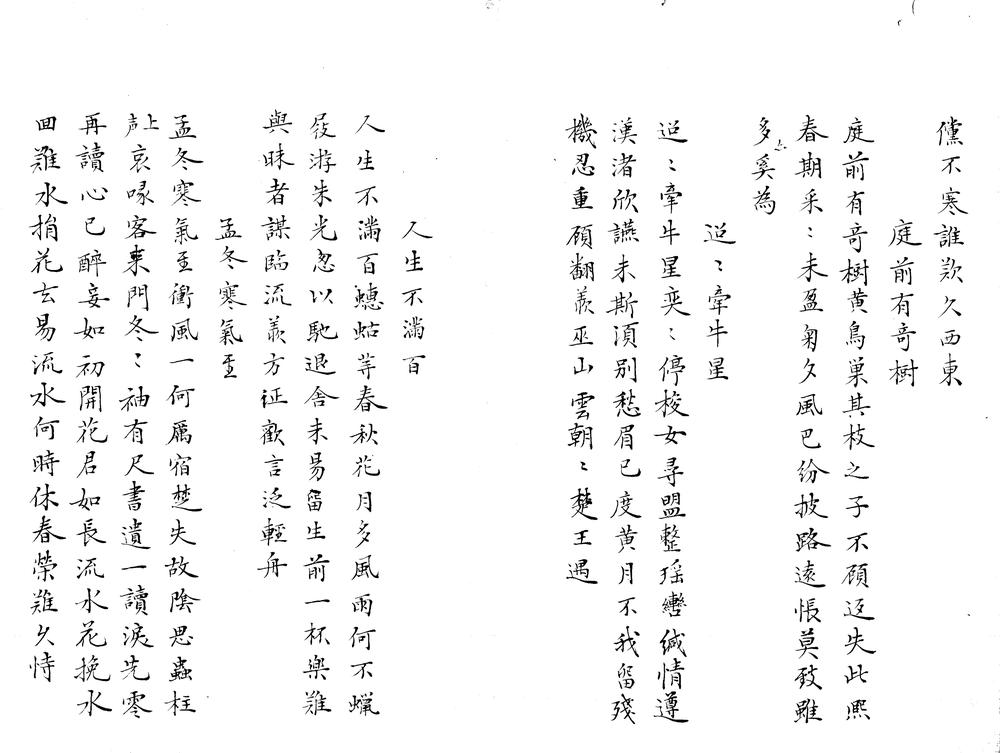 儻不寒誰欺久西東
庭前有竒樹
庭前有竒樹黄鳥巢其枝之子不顧返失此熙
春期采〻未盈匊夕風已紛披路遠悵莫致雖
多奚為
迢〻牽牛星
迢〻牽牛星奕〻停梭女尋盟整瑶轡缄情遵
漢渚欣讌未斯湏别愁眉已度黄月不我留殘
機忍重顧翻羨巫山雲朝〻楚王遇
人生不滿百
人生不滿百蟪蛄等春秋花月多風雨何不蠟
屐游朱光忽以馳退舍未昜留生前一杯樂難
與昧者謀臨流羨方证歡言泛輕舟
孟冬寒氣至
孟冬寒氣至衝風一何厲宿楚失故陰思蟲柱
上声哀喙客来門冬〻袖有尺書遺一讀淚先零
再讀心已醉妾如初開花君如長流水花挽水
回難水捎花去易流水何時休春榮難久恃